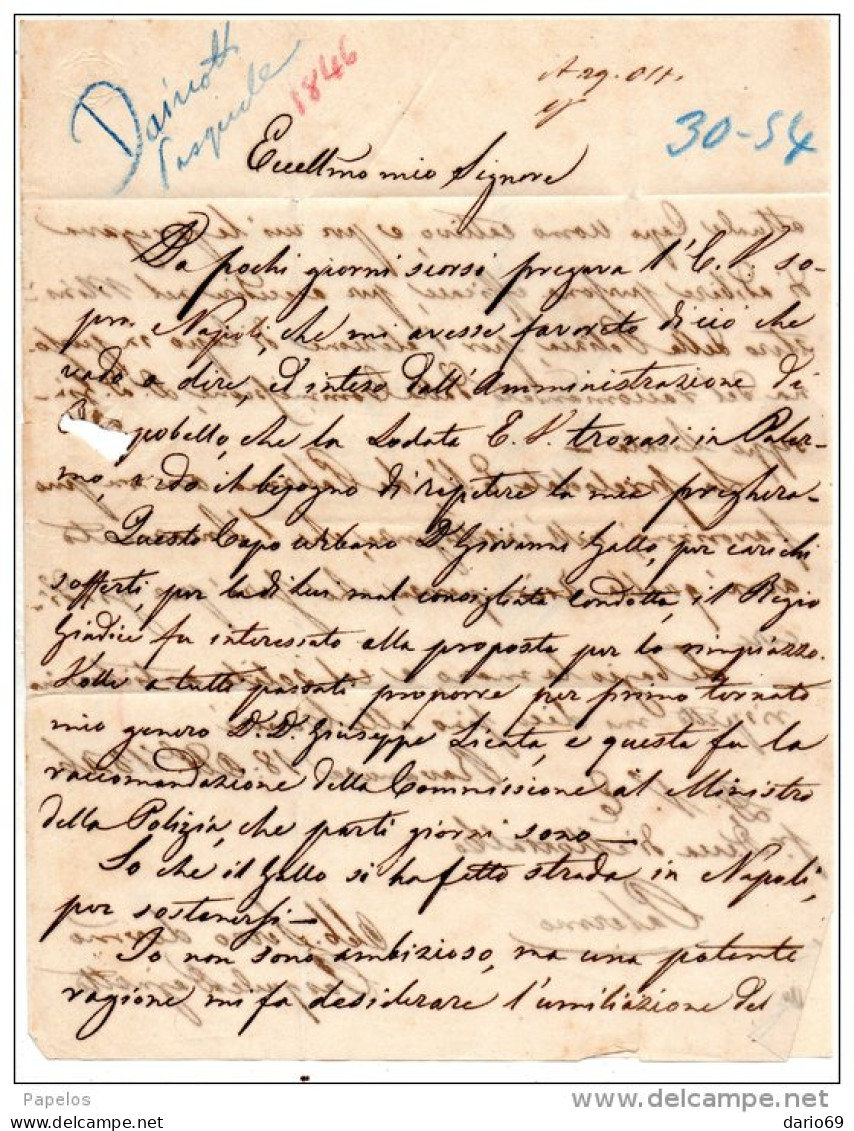 Pasquale
1846
30-54
Eccellmo mio Signore
Da pochi giorni scorsi pregava l'E. V. so-
pra Napoli, che mi avesse favorato di ciò che
vado a dire, ed inteso dall'Amministrazione di
pobello, che la Lodata E. V. trovasi in Paler-
mo, vedo il bisogno di ripetere la mia preghiera-
Questo Capo urbano Dn Giovanni Gallo, per carichi
sofferti, per la di lui mal consigliata condotta, il Regio
Giudice fu interessato alla proposta per lo rimpiazzo.
Volle a tutti passati proporre per primo tornato
mio genero D. Dn Giuseppe Licata, e questa fu la
raccomandazione della Commissione al Ministro
della Polizia, che partì giorni sono-
So che il Gallo si ha fatto strada in Napoli,
per sostenersi-
Io non sono ambizioso, ma una potente
ragione mi fa desiderare l'umiliazione del
Papelos
delcampe.net
dario69